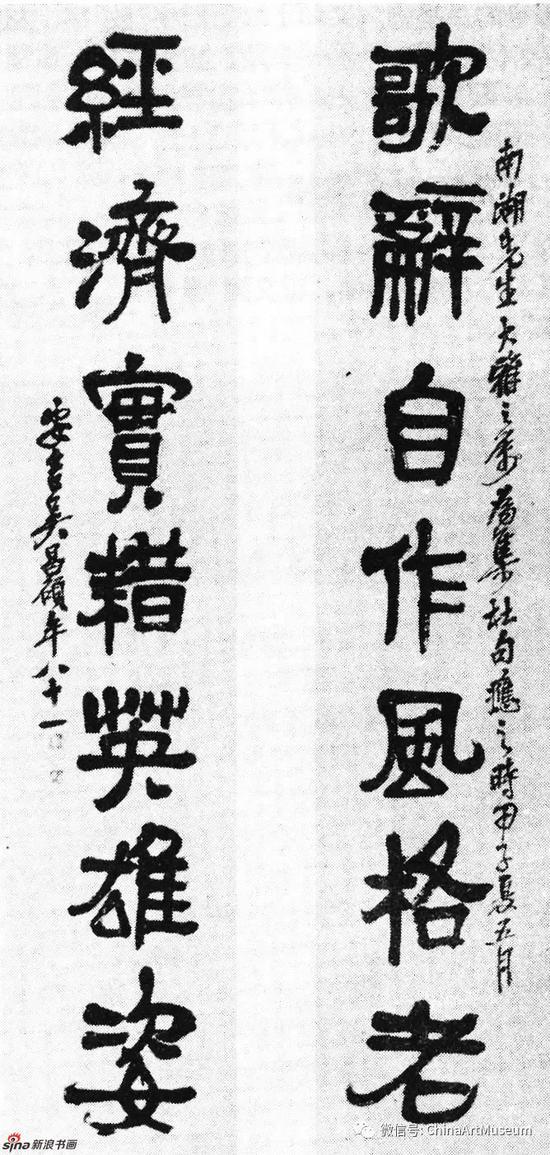 南湖先生大雅之屬為集杜句應之時甲子夏五月
歌辭自作風格老
經濟實耤英雄姿
安吉吳昌碩年八十一
微信号: ChinaArtMuseum
sina新浪书画